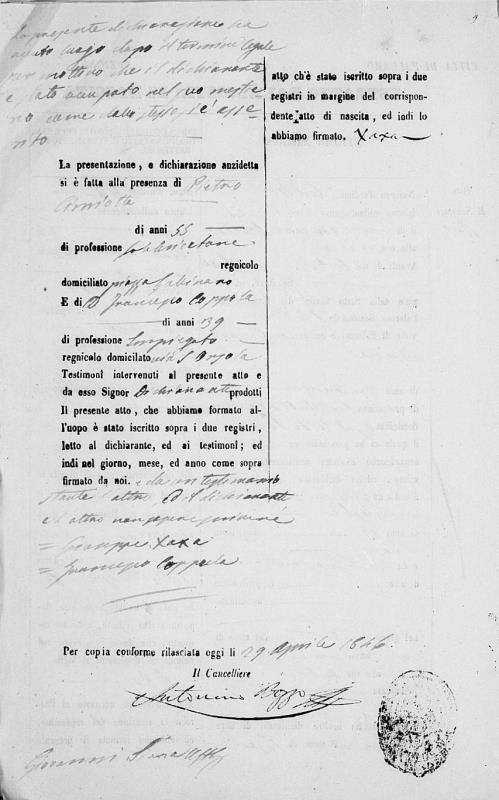 La presente dichiarazione ha
avuto luogo dopo il termine legale
per motivo che il dichiarante
è stato occupato nel suo mestie
re come dallo stesso si è asse
rito
La presentazione, e dichiarazione anzidetta
si è fatta alla presenza di Pietro
di anni 55
di professione
regnicolo
domiciliato piazza
E di D. Francesco Coppola
di anni 39
di professione Impiegato
regnicolo domicilato via S. Orsola
Testimoni intervenuti al presente atto e
da esso Signor Dichiarante prodotti
Il presente atto, che abbiamo formato al-
l'uopo è stato iscritto sopra i due registri,
letto al dichiarante, ed ai testimoni; ed
indi nel giorno, mese, ed anno come sopra
firmato da noi. e da un testimonio
stante l'altro ed il dichiarante
e l'altro non sapere scrivere
= Giuseppe Xaxa
= Francesco Coppola
atto ch'è stato iscritto sopra i due
registri in margine del corrispon-
dente atto di nascita, ed indi lo
abbiamo firmato. Xaxa
Per copia conforme rilasciata oggi li 29 Aprile 1846
Il Cancelliere
Antonino
Giovanni